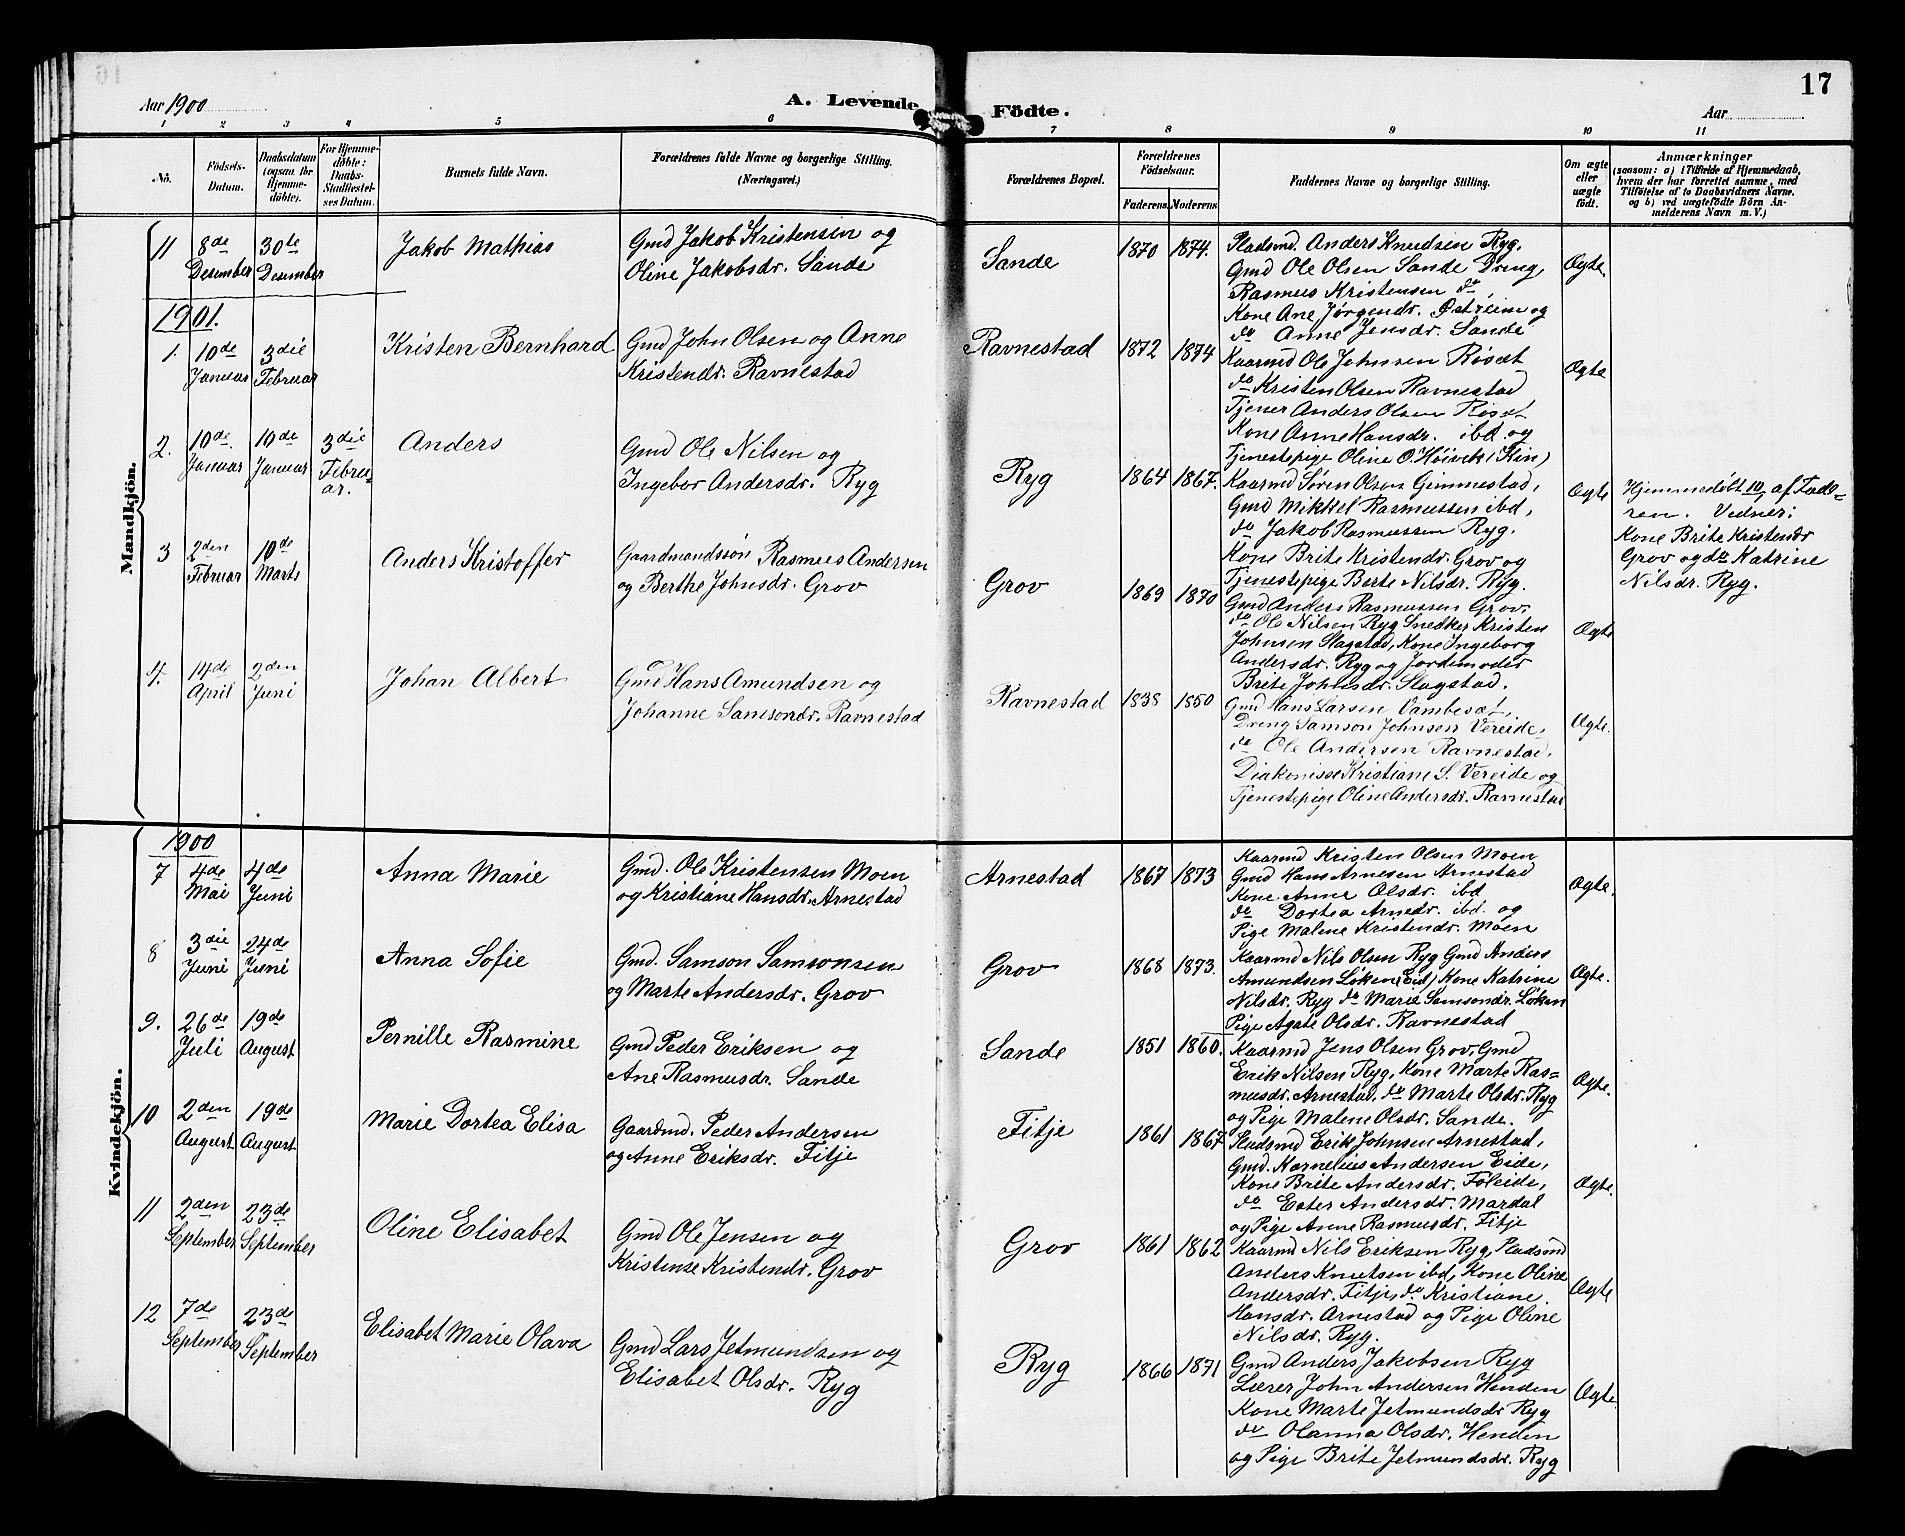 17
Aar 1900
A. Levende Födte.
Aar
1 2 3 4 5 6 7 8 9 10 11
No.
Födsels-
Datum.
Daabsdatum
(ogsaa for
Hjemme-
döbte).
For Hjemme-
döbte:
Daabs-
Stadfæstel-
ses Datum.
Barnets fulde Navn.
Forældrenes fulde Navne og borgerlige Stilling.
(Næringsvei.)
Forældrenes Bopæl.
Forældrenes
Födselsaar.
Faderens.
Moderens.
Faddernes Navne og borgerlige Stilling.
Om ægte
eller
uægte
født.
Anmærkninger
(saasom: a) i Tilfælde af Hjemmedaab,
hvem der har forrettet samme, med
Tilföielse af to Daabsvidners Navne,
og b) ved uægtefödte Börn An-
melderens Navn m. V.)
Mandkjön.
11
8de
Desember
30te
Desember
Jakob Mathias
Gmd Jakob Kristensen og
Oline Jakobsdr. Sande
Sande
1870
1874.
Pladsmd. Anders Knudsen Ryg.
Gmd Ole Olsen Sande Dreng,
Rasmus Kristensen do
Kone Ane Jørgendr. Østreim og
do Anne Jensdr. Sande
Ægte.
1901.
1.
10de
Januar
3die
Februar
Kristen Bernhard
Gmd John Olsen og Anne
Kristendr. Ravnestad
Ravnestad
1872
1874
Kaarmd Ole Johnsen Røsæt
do Kristen Olsen Ravnestad
Tjener Anders Olsen Røsæt
Kone Anne Hansdr. ibd og
Tjenestepige Oline O. Høivik (Kin)
Ægte
2.
10de
Januar
10de
Januar
3die
Februe-
ar.
Anders
Gmd Ole Nilsen og
Ingebor Andersdr. Ryg
Ryg
1864
1867.
Kaarmd Søren Olsen Gimmestad,
Gmd Mikkel Rasmussen ibd,
do Jakob Rasmussen Ryg.
Kone Brite Kristendr. Grov og
Tjenestepige Berte Nilsdr. Ryg.
Ægte
Hjemmedøbt 10/1 af Fade-
ren. Vidner:
Kone Brite Kristendr
Grov og do Katrine
Nilsdr. Ryg.
3
2den
Februar
10de
Marts
Anders Kristoffer
Gaardmandssøn Rasmus Andersen
og Berthe Johnsdr. Grov
Grov
1869
1870
Gmd Anders Rasmussen Grov,
do Ole Nilsen Ryg Snedker Kristen
Johnsen Slagstad, Kone Ingeborg
Andersdr. Ryg og Jordemoder
Brite Johnsdr. Slagstad.
Ægte
4.
14de
April
2den
Juni
Johan Albert
Gmd Hans Amundsen og
Johanne Samsondr. Ravnestad
Ravnestad
1838
1850
Gmd Hans Larsen Vambesæt,
Dreng Samson Johnsen Vereide,
do Ole Andersen Ravnestad,
Diakonisse Kristiane S. Vereide og
Tjenestepige Oline Andersdr. Ravnestad
Ægte.
Kvindekjön.
1900
7
4de
Mai
4de
Juni
Anna Marie
Gmd. Ole Kristensen Moen
og Kristiane Hansdr. Arnestad
Arnestad
1867
1873
Kaarmd Kristen Olsen Moen
Gmd Hans Arnesen Arnestad
Kone Anne Olsdr. ibd
do Dortea Arnedr. ibd. og
Pige Malene Kristendr. Moen
Ægte.
8
3die
Juni
24de
Juni
Anna Sofie
Gmd. Samson Samsonsen
og Marte Andersdr. Grov
Grov
1868
1873.
Kaarmd Nils Olsen Ryg Gmd Anders
Amundsen Løken (Eid) Kone Katrine
Nilsdr. Ryg do Marie Samsondr. Løken
Pige Agate Olsdr. Ravnestad
Ægte.
9.
26de
Juli
19de
August
Pernille Rasmine
Gmd Peder Eriksen og
Ane Rasmusdr. Sande
Sande
1851
1860.
Kaarmd Jens Olsen Grov, Gmd
Erik Nilsen Ryg, Kone Marte Ras-
musdr. Arnestad, do Marte Olsdr. Ryg
og Pige Malene Olsdr. Sande.
Ægte.
10
2den
August
19de
August
Marie Dortea Elisa
Gaardmd. Peder Andersen
og Anne Eriksdr. Fitje
Fitje
1861
1867
Pladsmd Erik Johnsen Arnestad,
Gmd. Kornelius Andersen Eide,
Kone Brite Andersdr. Føleide,
do Ester Andersdr. Mardal
og Pige Anne Rasmusdr. Fitje
Ægte.
11
2den
September
23de
September
Oline Elisabet
Gmd Ole Jensen og
Kristense Kristendr. Grov
Grov
1861
1862
Kaarmd Nils Eriksen Ryg, Pladsmd
Anders Knutsen ibd, Kone Oline
Andersdr. Fitje, do Kristiane
Hansdr. Arnestad og Pige Oline
Nilsdr. Ryg.
Ægte
12
7de
September
23de
September
Elisabet Marie Olava
Gmd Lars Jetmundsen og
Elisabet Olsdr. Ryg
Ryg
1866
1871
Gmd Anders Jakobsen Ryg
Lærer John Andersen Henden
Kone Marte Jetmundsdr Ryg
do Olanna Olsdr. Henden
og Pige Brite Jetmundsdr. Ryg
Ægte.